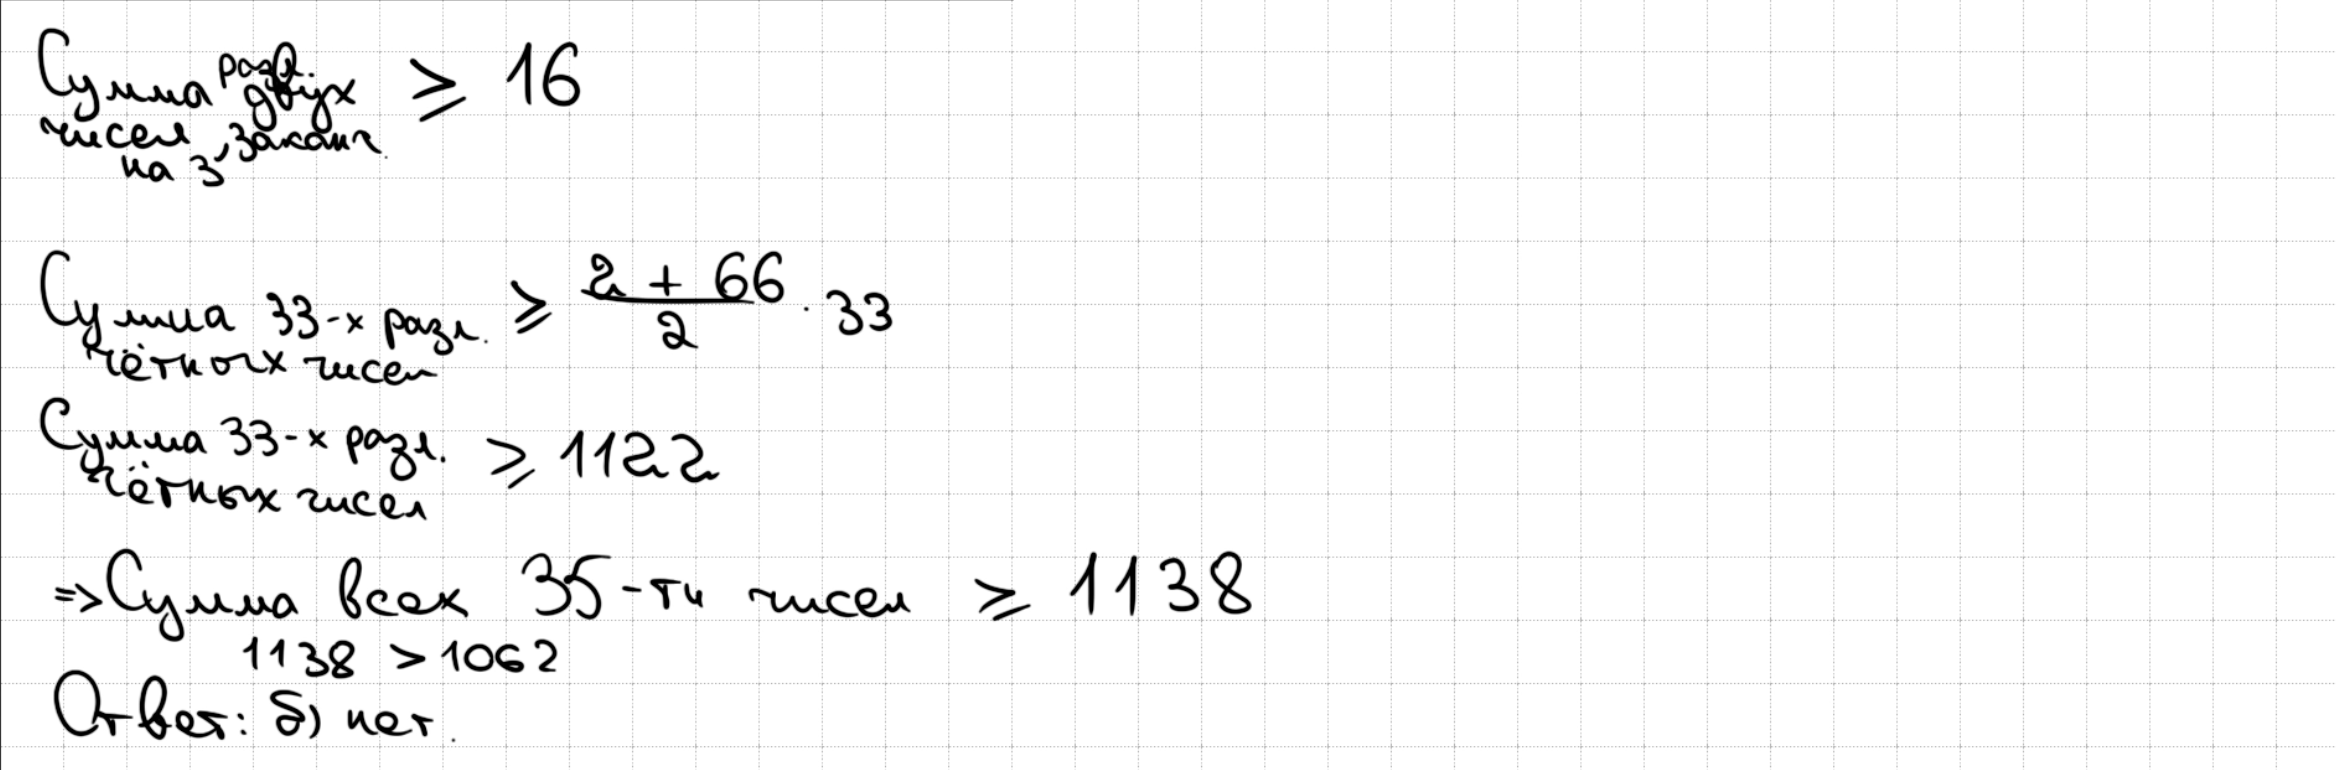 Сумма разл. двух ⩾ 16
чисел, заканч.
на 3
Сумма 33-х разл. ⩾ 2 + 66 / 2 · 33
чётных чисел
Сумма 33-х разл. ⩾ 1122
чётных чисел
=> Сумма всех 35-ти чисел ⩾ 1138
1138 > 1062
Ответ: б) нет.